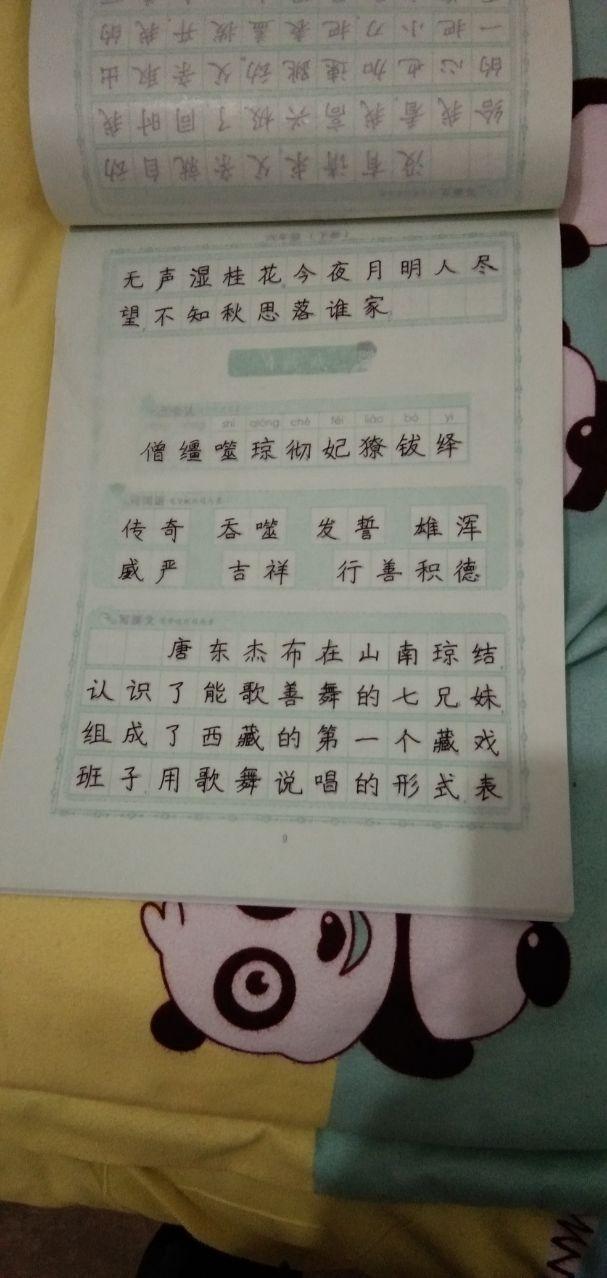 一把小刀,把表盖拨开,我的
的心也加速跳动,父亲取出
给我看,我高兴极了,同时我
没有请求,父亲就自动
无声湿桂花。今夜月明人尽
望,不知秋思落谁家。
shì qióng chè fēi liáo bó yì
僧 缰 噬 琼 彻 妃 獠 钹 绎
词语
传奇 吞噬 发誓 雄浑
威严 吉祥 行善积德
写课文
唐东杰布在山南琼结,
认识了能歌善舞的七兄妹,
组成了西藏的第一个藏戏
班子,用歌舞说唱的形式,表
9